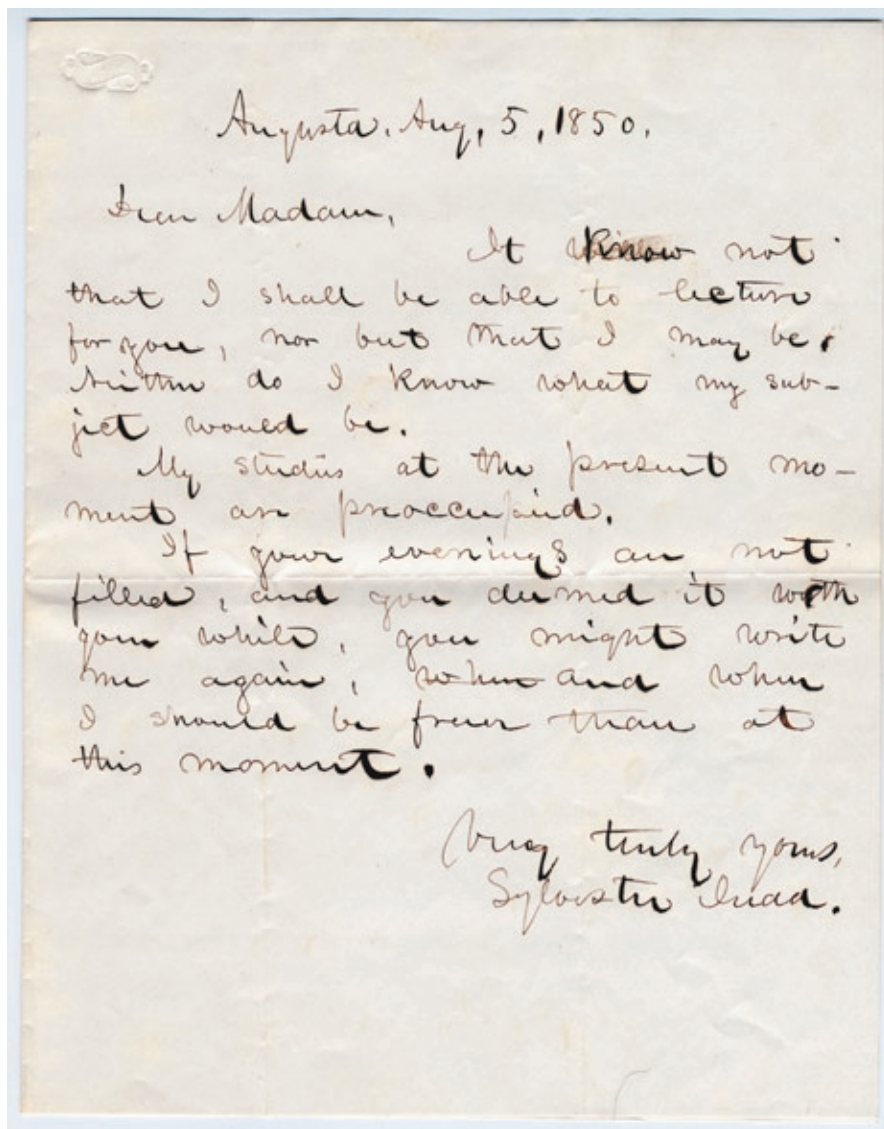 Augusta. Aug, 5, 1850.
Dear Madam,
It know not
that I shall be able to lecture
for you, nor but that I may be.
Neither do I know what my sub-
ject would be.
My studies at the present mo-
ment are preoccupied.
If your evenings are not
filled, and you deemed it worth
your while, you might write
me again, when and when
I should be freer than at
this moment.
Very truly yours,
Sylvester Judd.